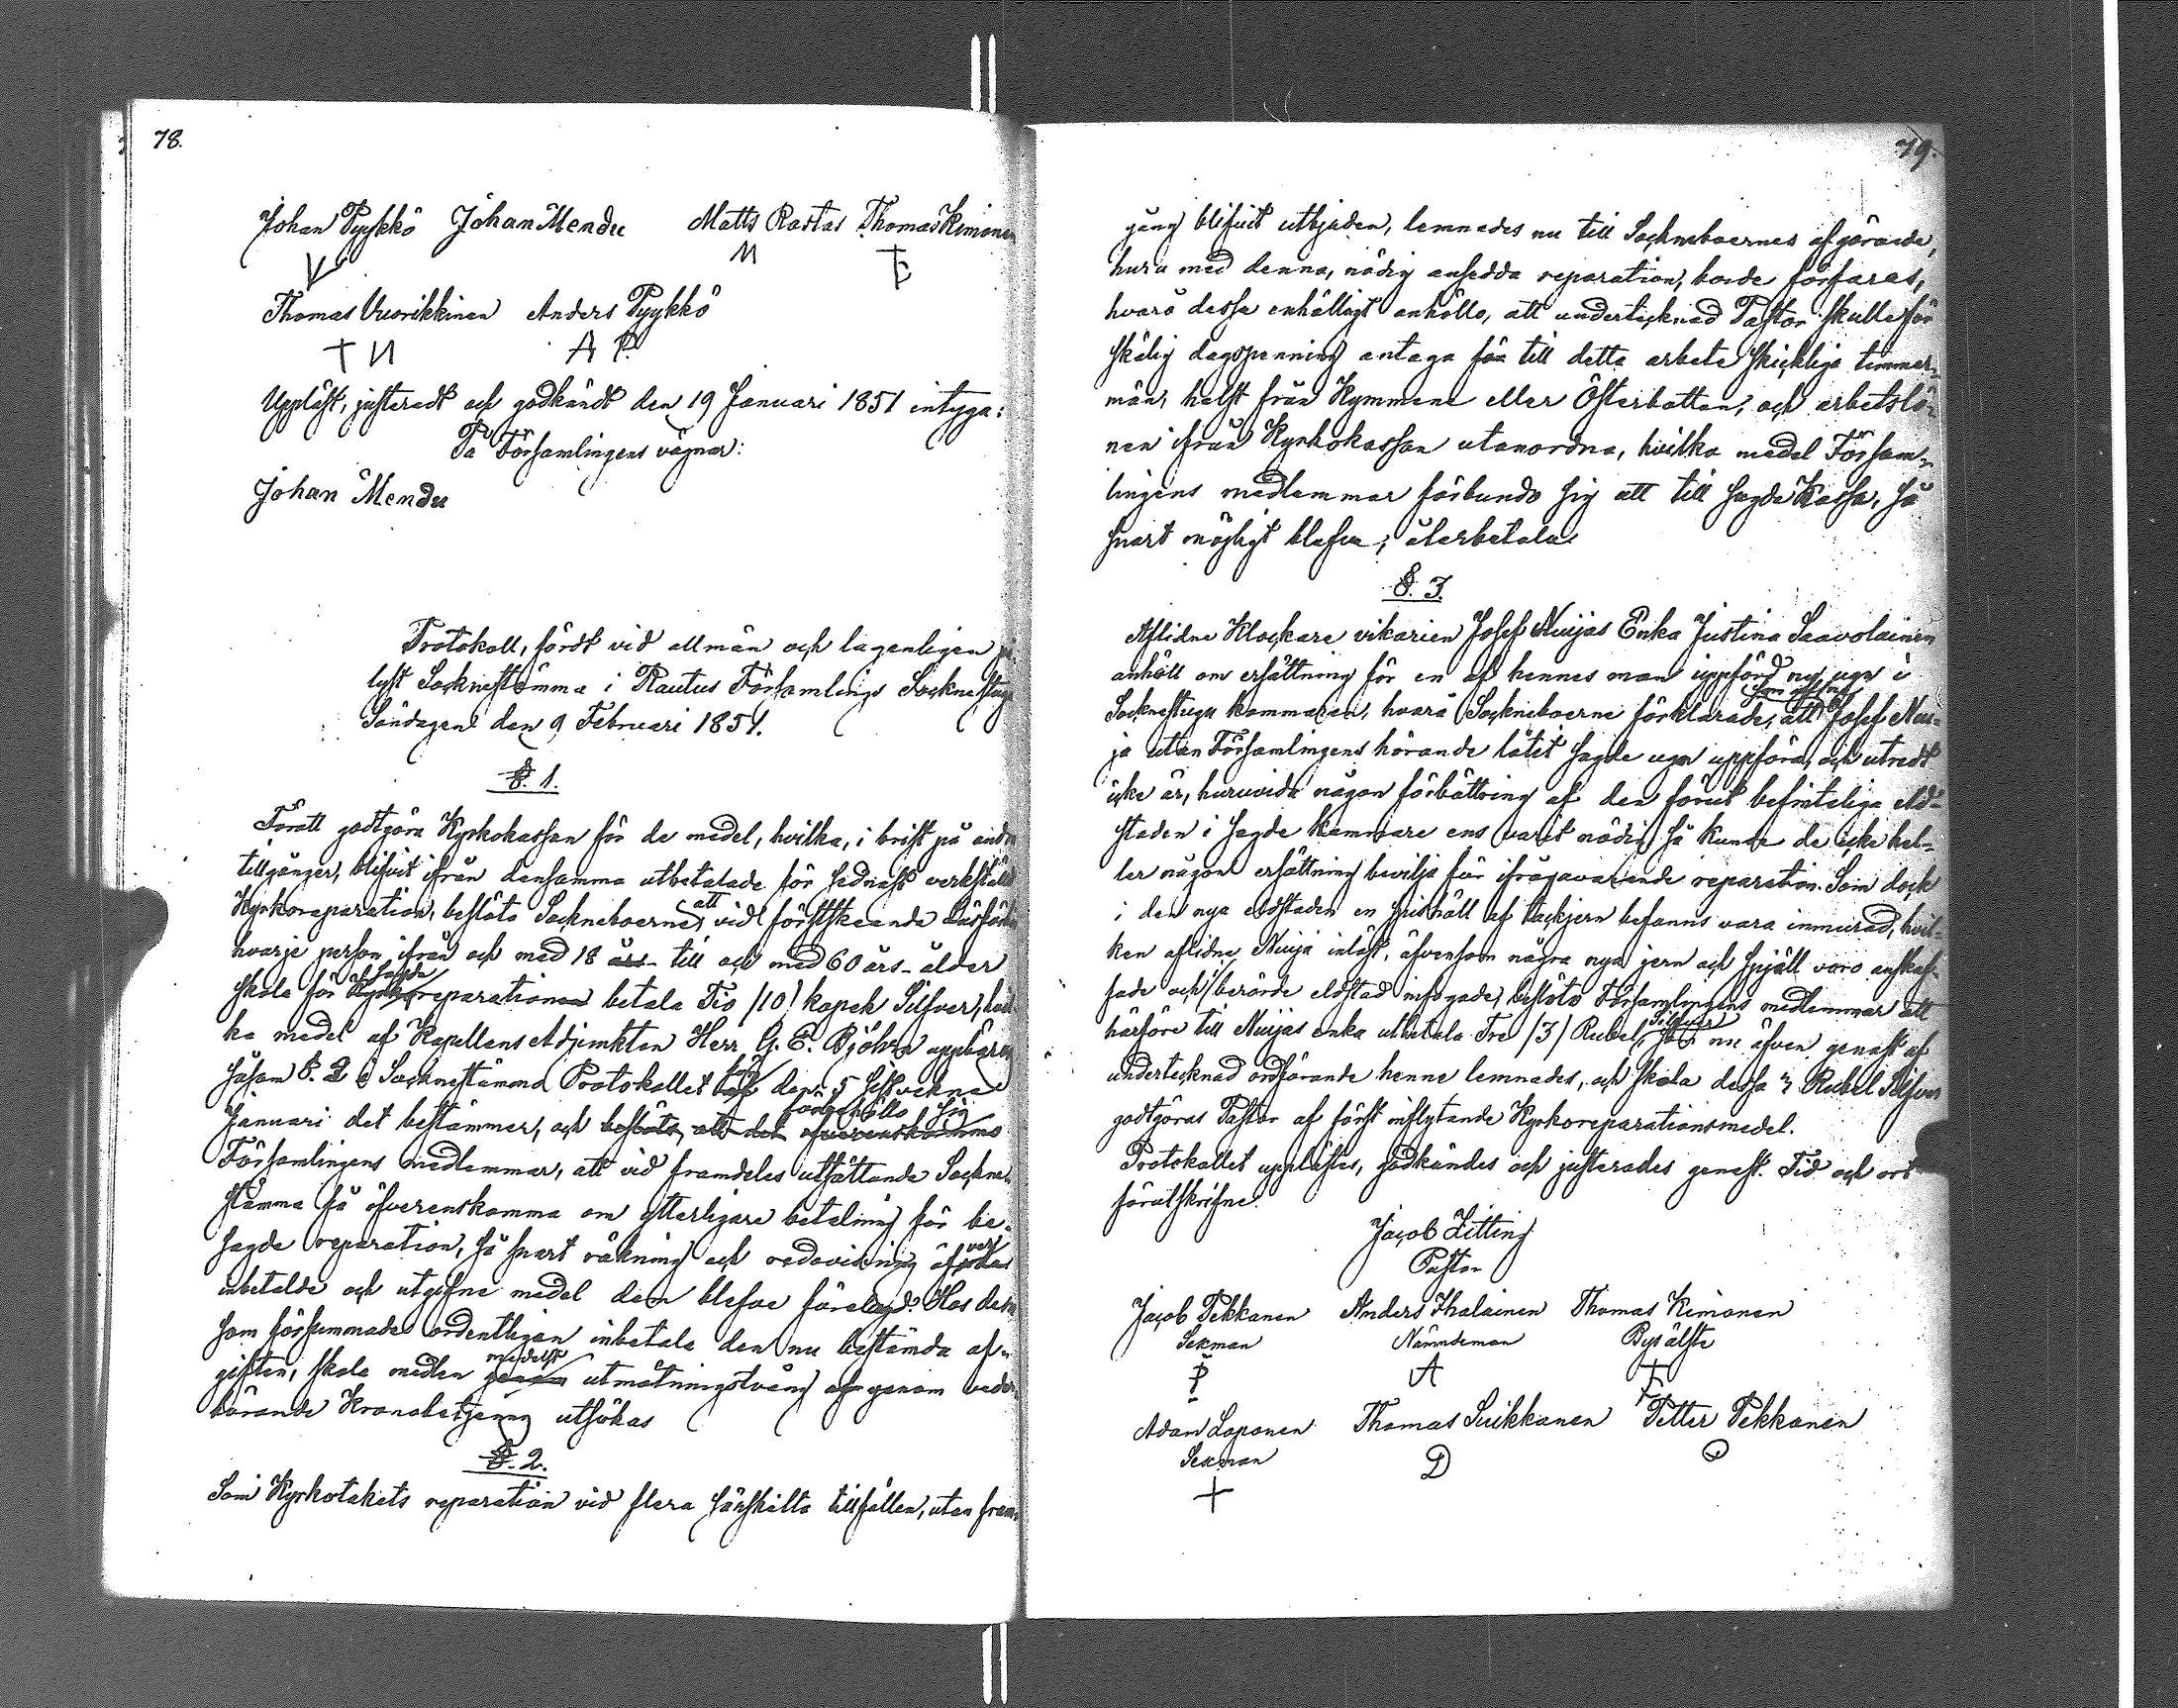 78.
Johan Pyykkö Johan Mendu Matts Rastas Thomas Kimonen
M
Thomas Vuorikkinen Anders Pyykkö
A P.
Uppläst, justeradt och godkändt den 19 Januari 1851 intyga:
På Församlingens vägnar:
Johan Mendu
Protokoll, fördt vid allmän och lagenligen
lyst Sockneståmma i Rautus Församlings Socknestuga
Söndagen den 9 Februari 1851.
§. 1.
Föratt godtgöra Kyrkokassan för de medel, hvilka, i brist på andra
tillgånger, blifvit ifrån densamma utbetalade för sednast verkställd
Kyrkoreparation, beslöto Sockneboerne, att vid förstskeende
hvarje person ifrån och med 18 års till och med 60 års-ålder
skola för besagde reparation betala Tio /10/ kopek Silfver, hvil-
ka medel af Kapellans Adjunkten Herr G. E. Björn uppbäras
såsom §. 2 i Sockneståmmo Protokollet den 5 sistvekne
Januari det bestämmer, och beslöto, att det öfverenskomme förbehöllo sig
Församlingens medlemmar, att vid framdeles utsättande Sockne-
stämma få öfverenskomma om ytterligare betalning för be-
sagde reparation, så snart räkning och redovisning öfver
inbetalde och utgifne medel dem blefve förelagd. Hos dem
som försummade ordentligen inbetala den nu bestämda af-
giften, skola medlen medelst utmätningstvång genom veder-
börande Kronobetjening utsökas
§. 2.
Som Kyrkotakets reparation vid flera särskilta tillfällen, utan fram-
79.
gång blifvit utbjuden, lemnades nu till Sockneboernes afgörande,
huru med denna, nödig ansedda reparation, borde förfaras,
hvarå dessa enhälligt anhöllo, att undertecknad Pastor skulle för
skälig dagspenning antaga för till detta arbete skicklige timmer-
män, helst från Kymmene eller Österbotten, och arbetslö-
nen ifrån Kyrkokassan utanordna, hvilka medel Försam-
lingens medlemmar förbundo sig att till sagde Kassa, så
snart möjligt blefve, återbetala.
§. 3.
Aflidne Klockare vikarien Josef Nuijas Enka Justina Saavolainen
anhöll om ersättning för en af hennes man uppförd ny ugn i
Socknestuga kammaren, hvarå Sockneboerne förklarade, att Josef Nui-
ja utan Församlingens hörande låtit sagde ugn uppföra, och utredt
icke är, huruvida någon förbättring af den förut befinteliga eld-
staden i sagde kammare ens varit nödig, så kunde de icke hel-
ler någon ersättning bevilja för ifrågavarande reparation. Som dock
i den nya eldstaden en spishäll af tackjern befanns vara inmurad, hvil-
ken aflidne Nuija inlöst, äfvensom några nya jern och spjäll voro anskaf-
fade och i berörde eldstad infogade, beslöto Församlingens medlemmar att
härföre till Nuijas enka utbetala Tre /3/ Rubel Silfver, som nu äfven genast af
undertecknad ordförande henne lemnades, och skola dessa 3 Rubel Silfver
godtgöras Pastor af först inflytande Kyrkoreparationsmedel.
Protokollet upplästes, godkändes och justerades genast. Tid och ort
förutskrifne.
Jacob Zitting
Pastor
Jacob Pekkanen Anders Ihalainen Thomas Kimonen
Sexman Nämndeman Byälste
P A
Adam Loponen Thomas Suikkanen Petter Pekkanen
Sexman